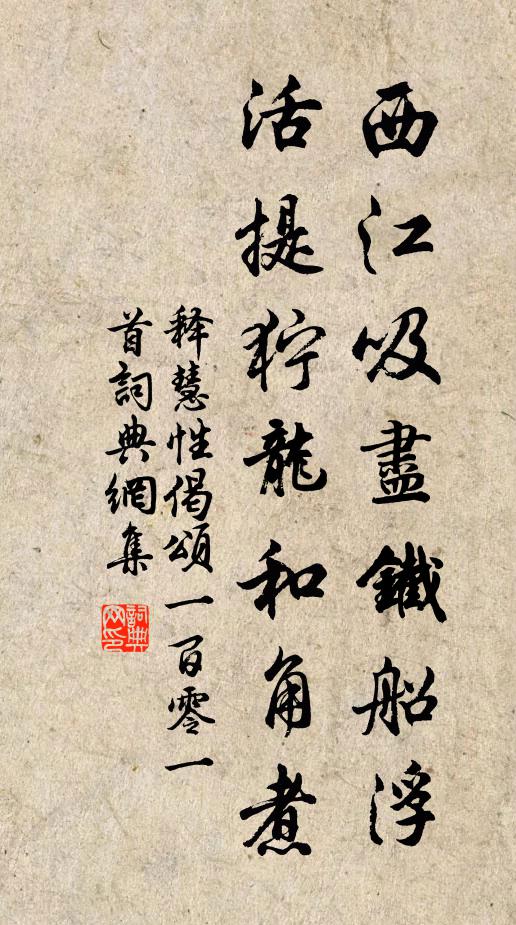 西江吸盡鐵船浮
活提狞龍和角煮
释慧性偈頌一百零一
首詞典網集
詞典網印